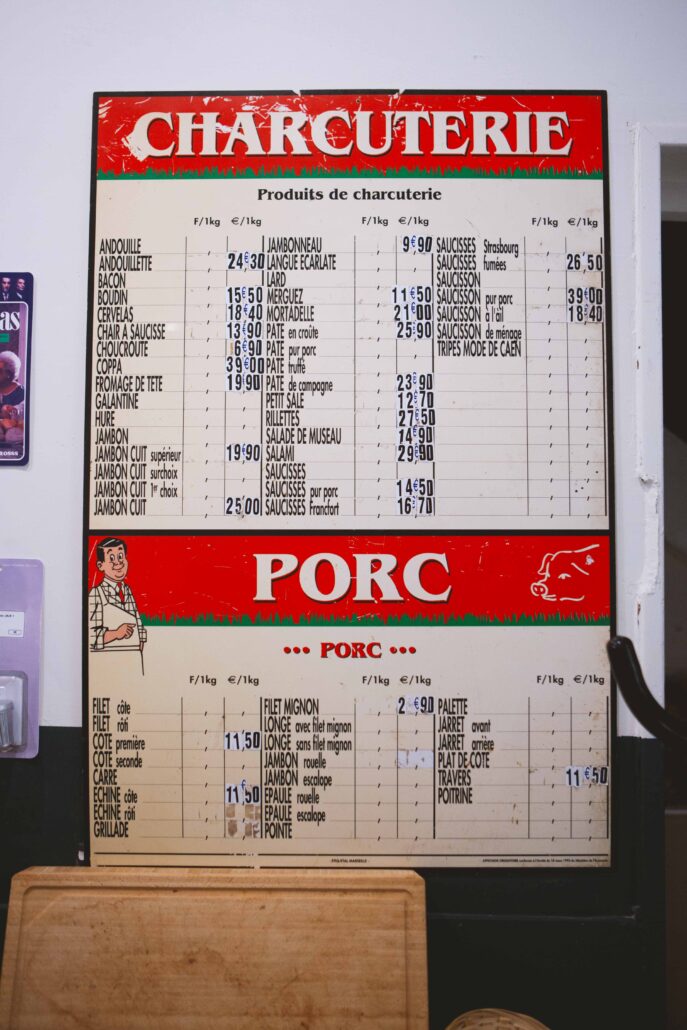 CHARCUTERIE
Produits de charcuterie
F/1kg €/1kg
ANDOUILLE
ANDOUILLETTE 24€30
BACON
BOUDIN 15€50
CERVELAS 18€40
CHAIR A SAUCISSE 13€90
CHOUCROUTE 6€90
COPPA 39€00
FROMAGE DE TETE 19€90
GALANTINE
HURE
JAMBON
JAMBON CUIT supérieur 19€90
JAMBON CUIT surchoix
JAMBON CUIT 1er choix
JAMBON CUIT 25€00
F/1kg €/1kg
JAMBONNEAU 9€90
LANGUE ECARLATE
LARD
MERGUEZ 11€50
MORTADELLE 21€00
PATE en croûte 25€90
PATE pur porc
PATE truffé
PATE de campagne 23€90
PETIT SALE 12€70
RILLETTES 27€50
SALADE DE MUSEAU 14€90
SALAMI 29€50
SAUCISSES
SAUCISSES pur porc 14€50
SAUCISSES Francfort 16€70
F/1kg €/1kg
SAUCISSES Strasbourg
SAUCISSES fumées 26€50
SAUCISSON
SAUCISSON pur porc 39€00
SAUCISSON à l'ail 18€40
SAUCISSON de ménage
TRIPES MODE DE CAEN
PORC
••• PORC •••
F/1kg €/1kg
FILET côte
FILET rôti
COTE première 11€50
COTE seconde
CARRE
ECHINE côte 11€50
ECHINE rôti
GRILLADE
F/1kg €/1kg
FILET MIGNON 2 €90
LONGE avec filet mignon
LONGE sans filet mignon
JAMBON rouelle
JAMBON escalope
EPAULE rouelle
EPAULE escalope
POINTE
F/1kg €/1kg
PALETTE
JARRET avant
JARRET arrière
PLAT DE COTE
TRAVERS 11€50
POITRINE
as